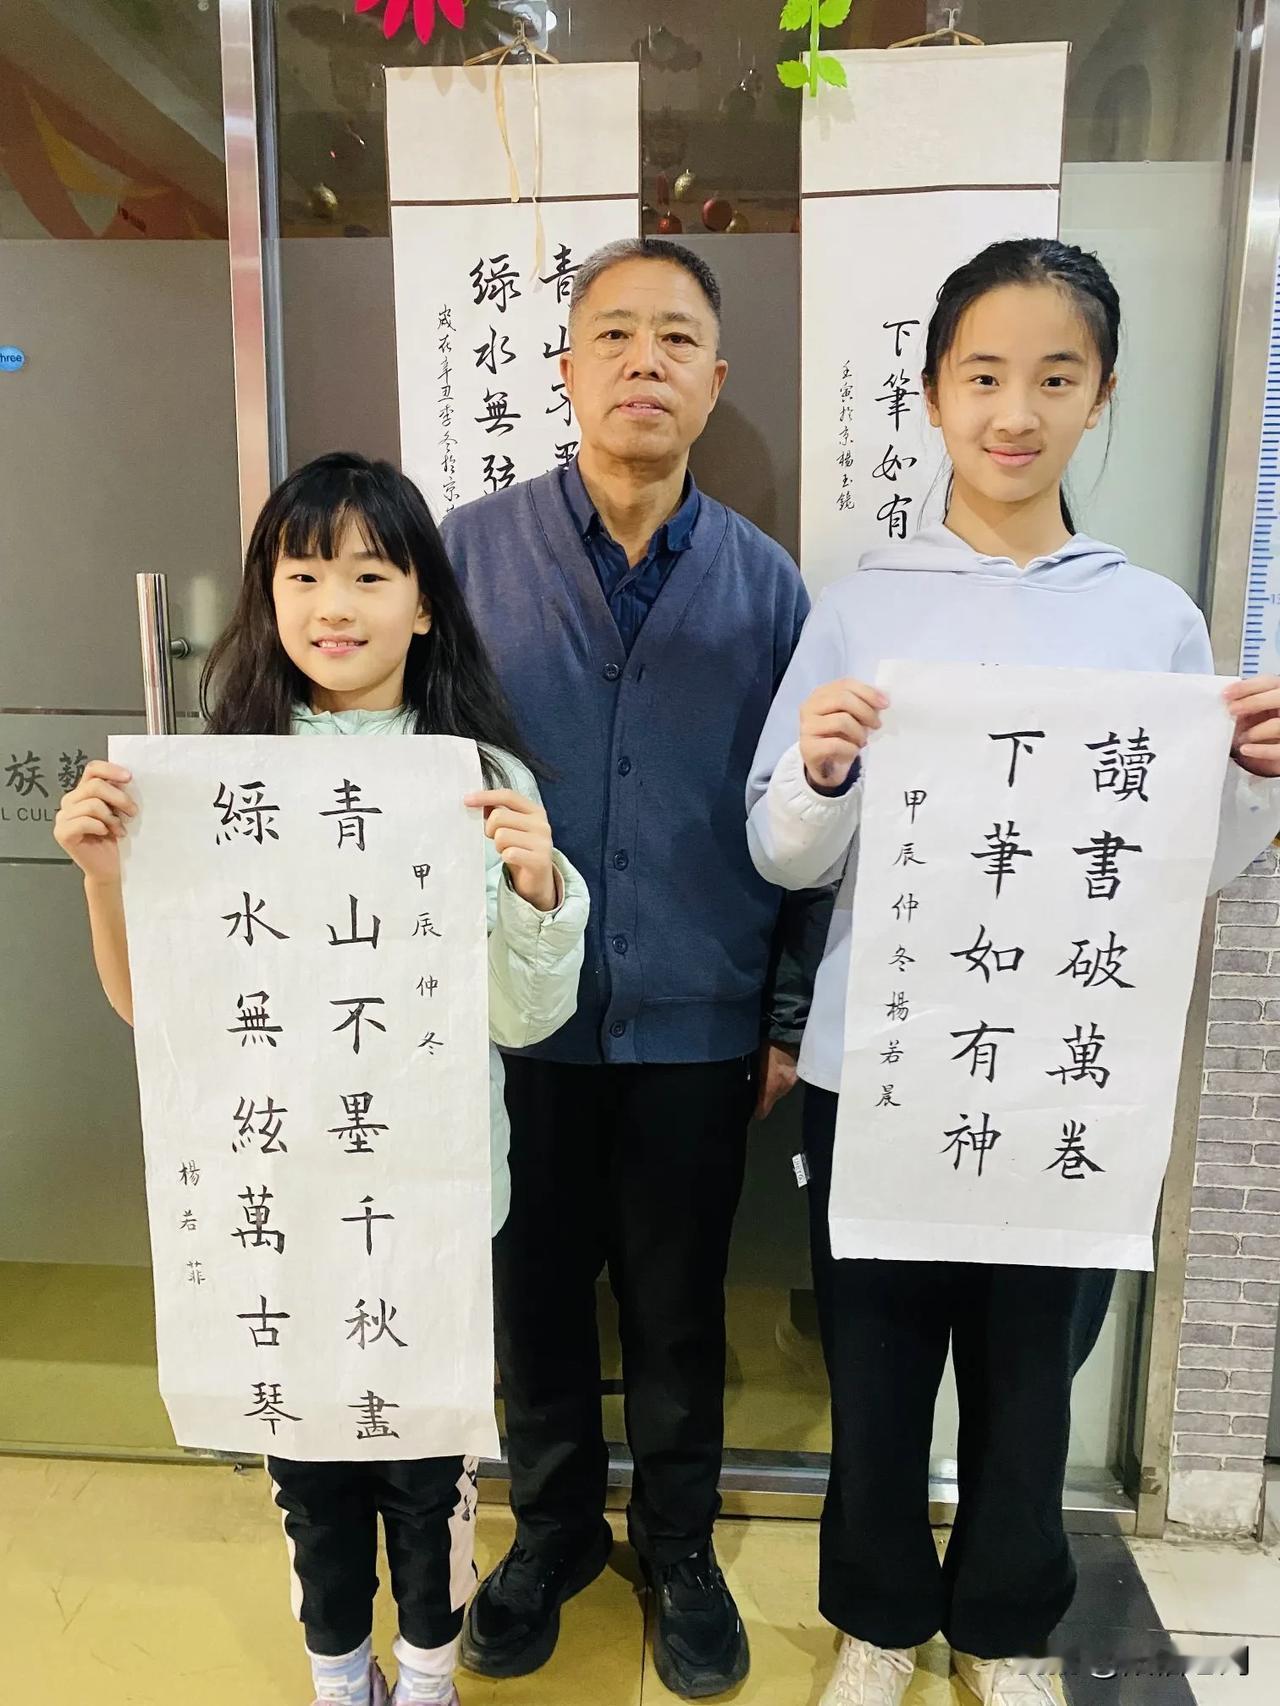 青山不墨
綠水無弦
歲在辛丑季冬於京
下筆如有
壬寅於京楊玉鏡
hree
族藝
L CUL
甲辰仲冬
青山不墨千秋畫
綠水無絃萬古琴
楊若菲
讀書破萬卷
下筆如有神
甲辰仲冬楊若晨